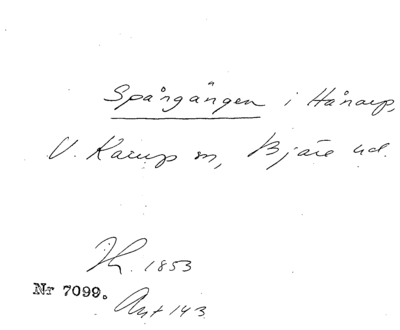 Spångången i Hånarp,
V. Karup sn, Bjäre hd.
Th. 1853
Nr 7099.
Ant 143